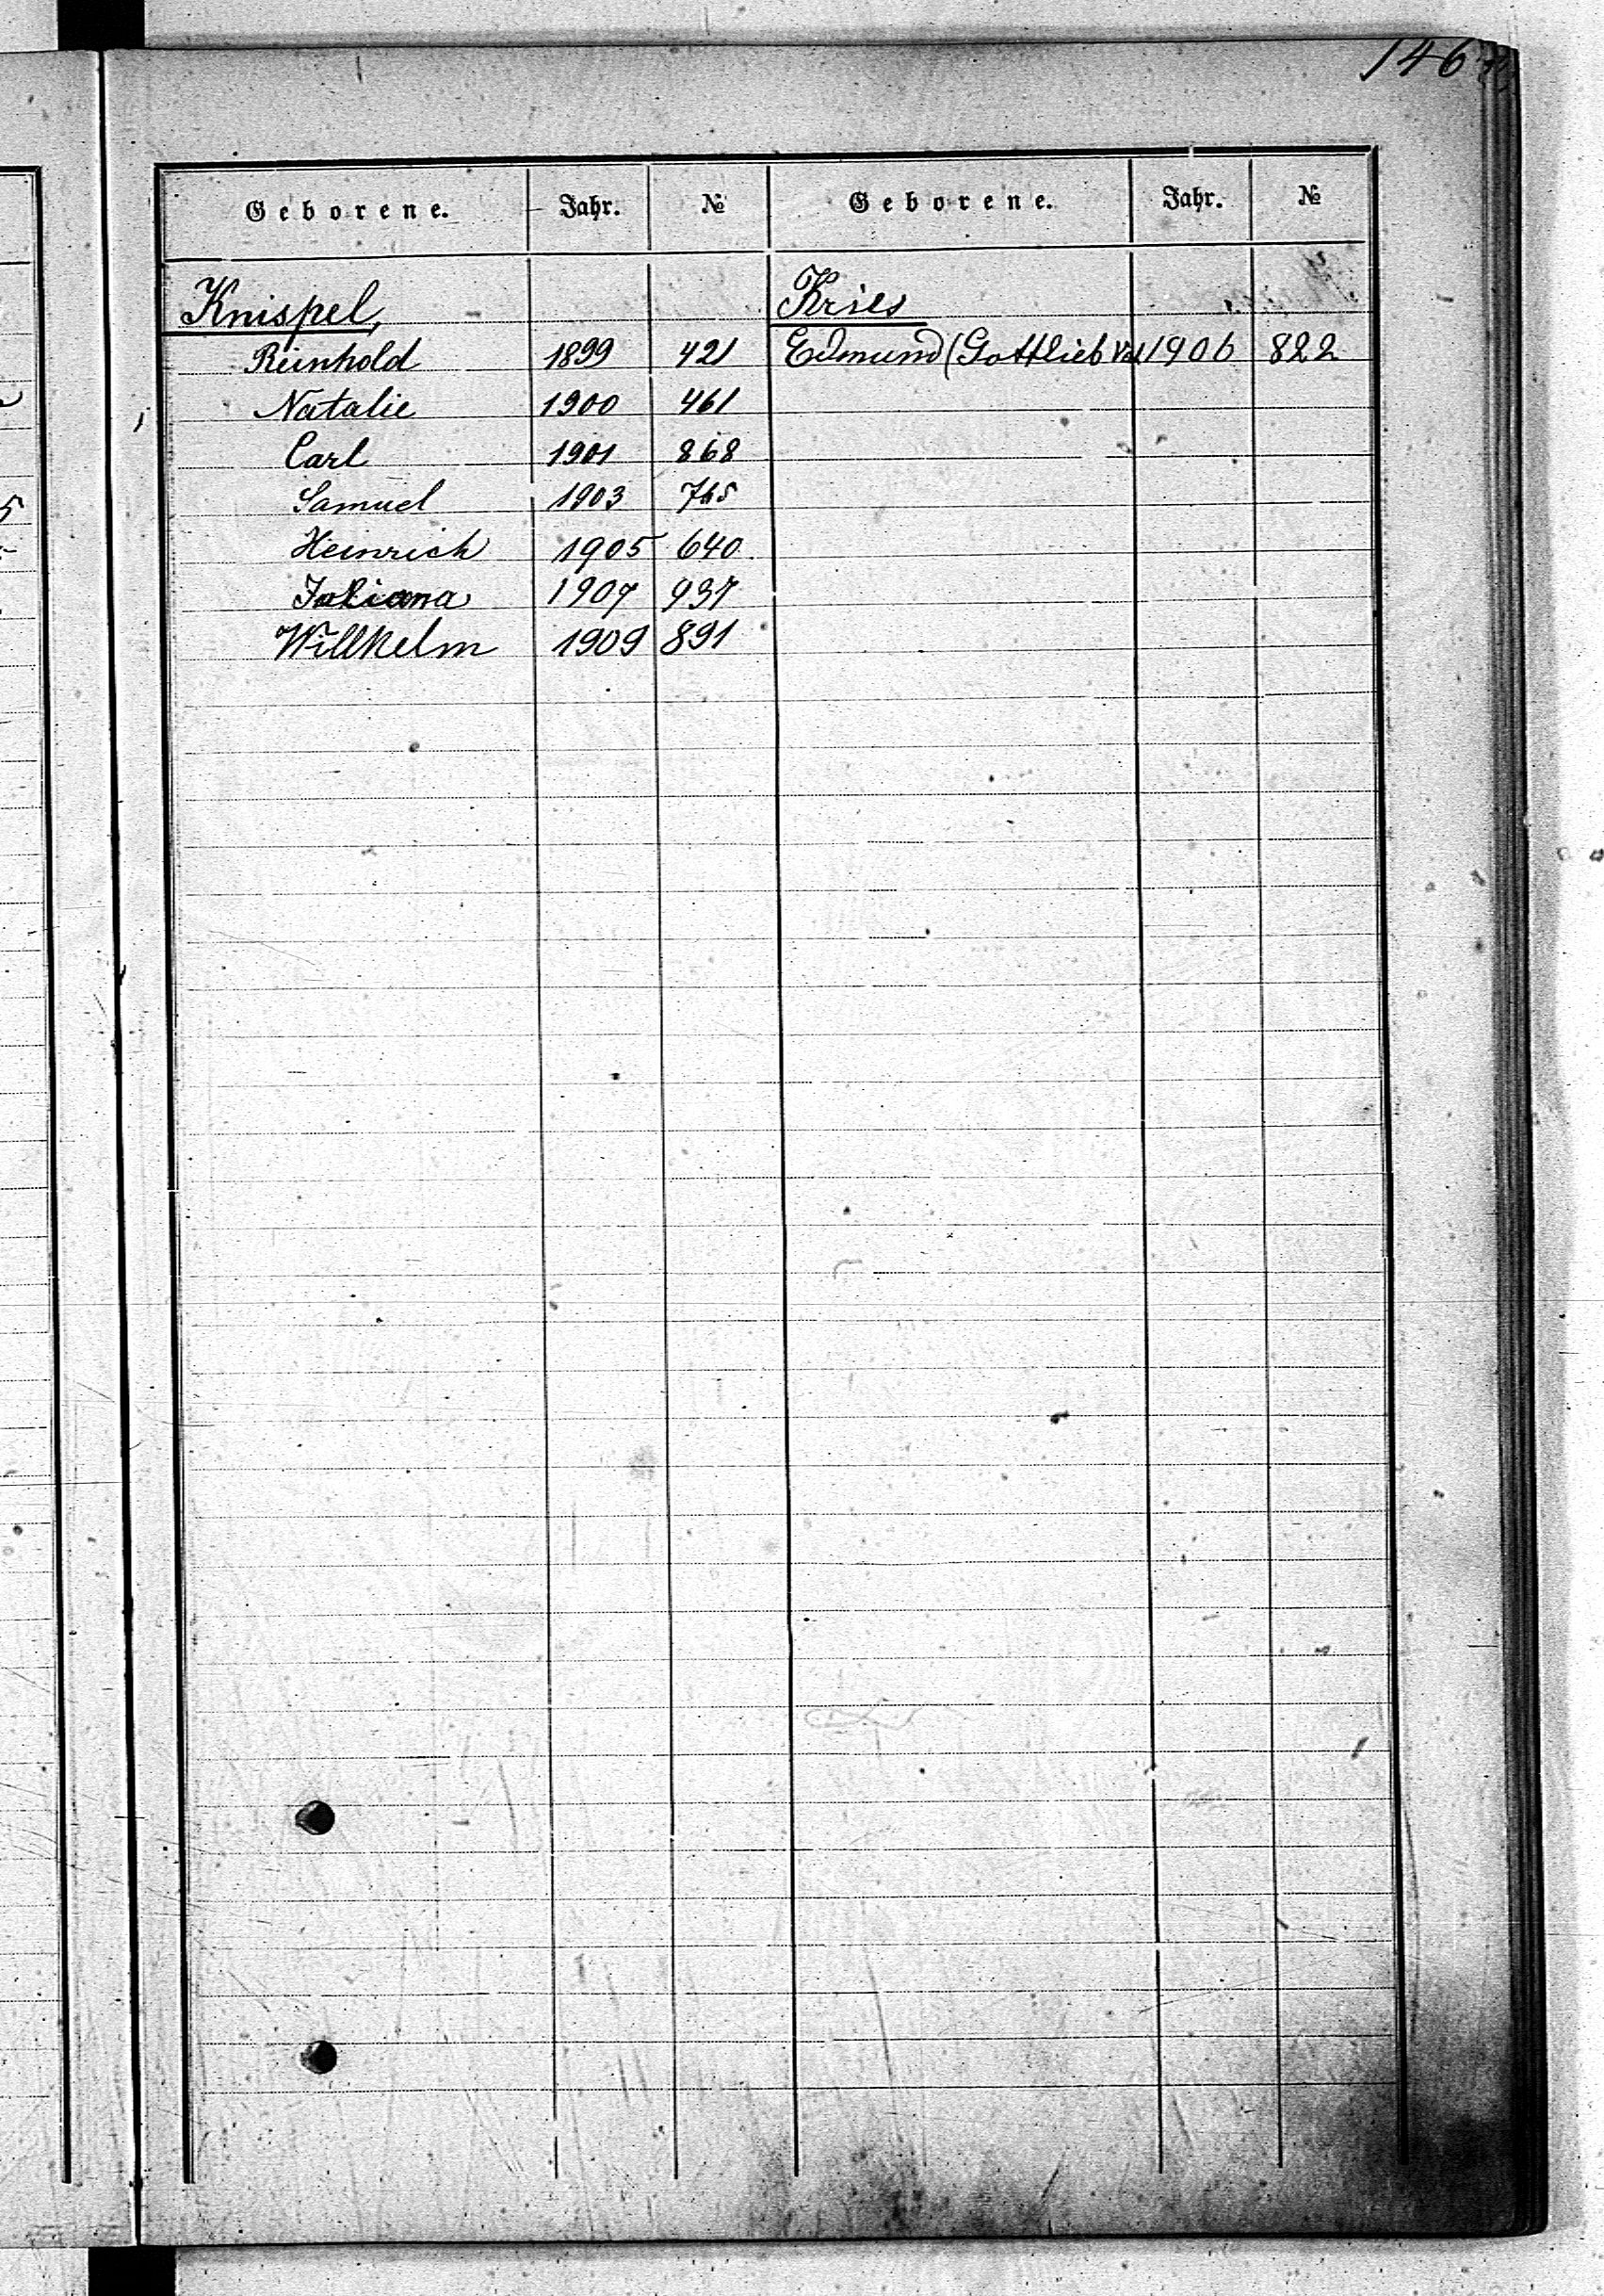 146
Geborene. Jahr. № Geborene. Jahr. №
Knispel,
Reinhold 1899 421
Natalie 1900 461
Carl 1901 868
Samuel 1903 765
Heinrich 1905 640
Juliana 1907 937
Willhelm 1909 891
Kries
Edmund (Gottlieb Vat 1906 822